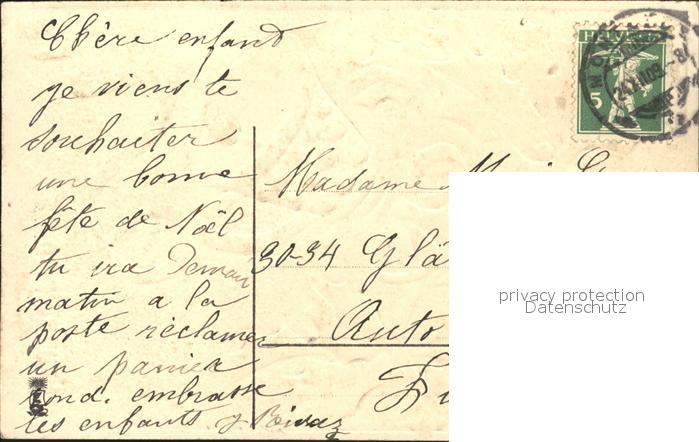 Chère enfant
je viens te
souhaiter
une bonne
fête de Noël
tu ira Demain
matin a la
poste réclamer
un panier
rond. embrasse
les enfants
Madame
30-34 Glä
Auto
HELVETIA
5
privacy protection
Datenschutz